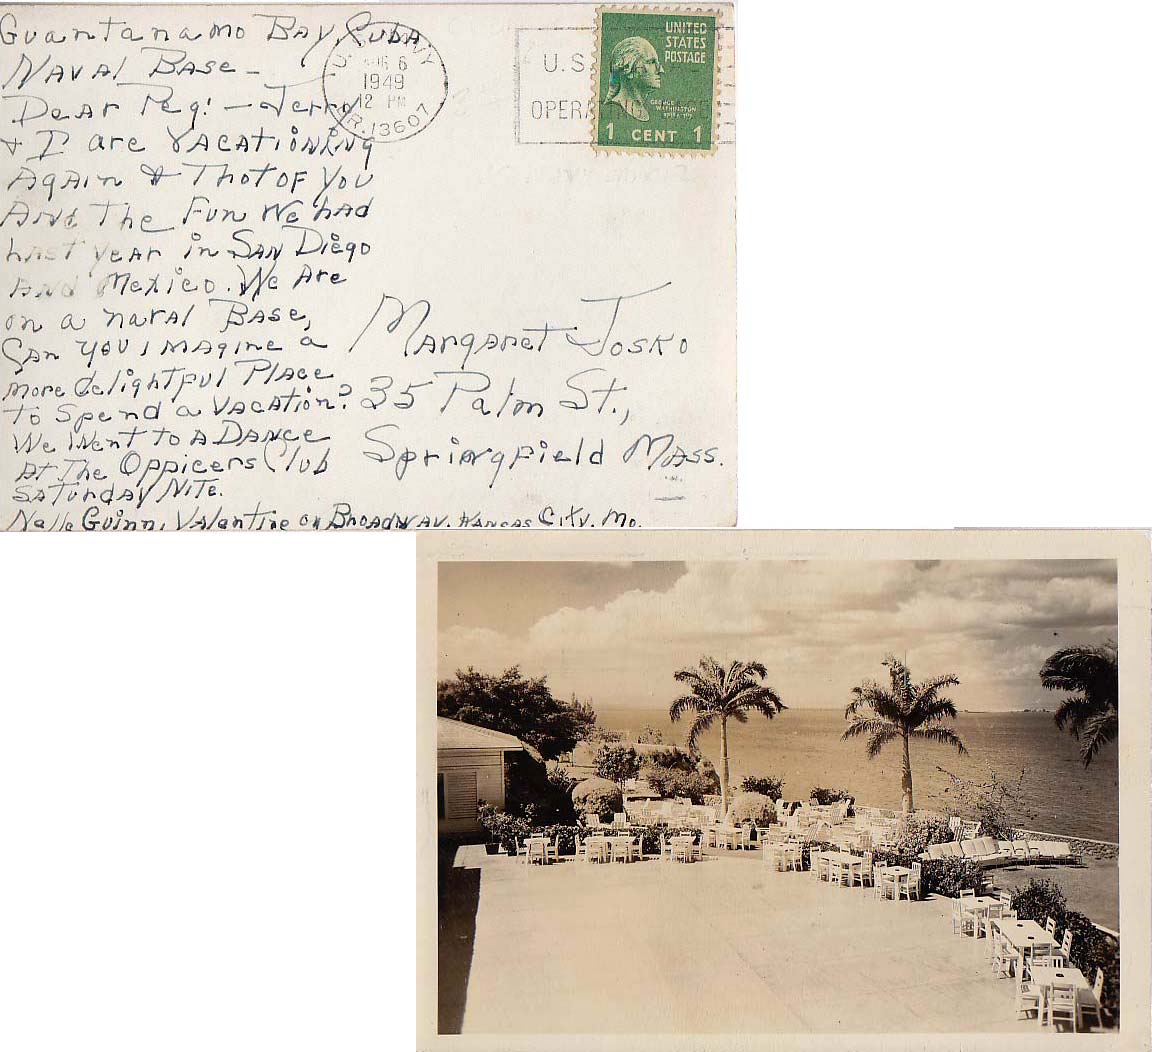 Guantanamo Bay, Cuba
Naval Base —
Dear Peg: — Jerry
& I are vacationing
Again & Thot of You
And The Fun We had
Last year in San Diego
And Mexico. We Are
on a naval Base,
Can you imagine a
more delightful Place
to Spend a vacation?
We Went to a Dance
At The Officers Club
Saturday Nite.
Nelle Guinn, Valentine on Broadway, Kansas City, Mo.
U.S. NAVY
AUG 6
1949
12 PM
BR. 13607
U.S.
OPERATING
UNITED
STATES
POSTAGE
GEORGE
WASHINGTON
1 CENT 1
Margaret Josko
35 Palm St.,
Springfield Mass.